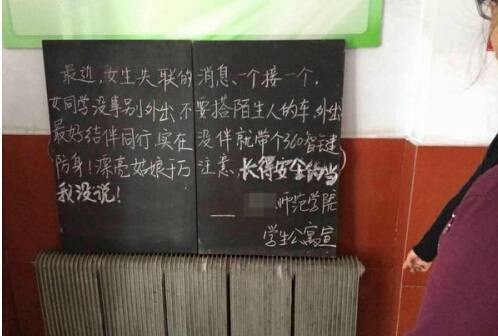 最近,女生失联的消息、一个接一个,
女同学没事别外出、不要搭陌生人的车,外出
最好结伴同行,实在没伴就带个360
防身!漂亮姑娘千万注意、长得安全的当
我没说!
师范学院
学生公寓宣